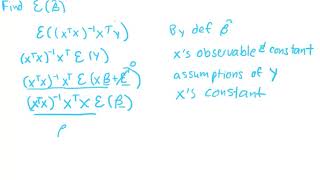 Find ε(β̂)
ε((xᵀx)⁻¹xᵀy) By def β̂
(xᵀx)⁻¹xᵀ ε(Y) x's observable & constant
(xᵀx)⁻¹xᵀ ε(xβ + ε)⁰ assumptions of Y
(xᵀx)⁻¹xᵀx ε(β) x's constant
β